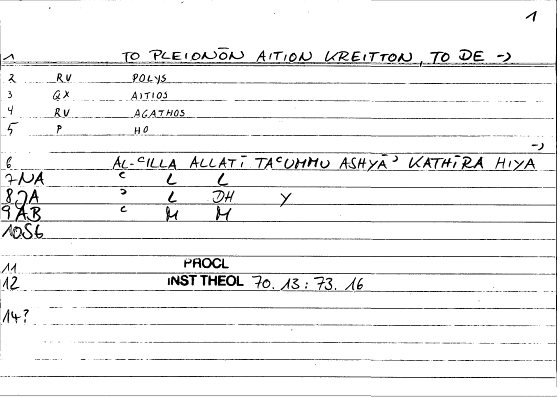 1
1 TO PLEIONŌN AITION KREITTON, TO DE →
2 RV POLYS
3 QX AITIOS
4 RV AGATHOS
5 P HO
→
6 AL-ᶜILLA ALLATĪ TAᶜUMMU ASHYĀʾ KATHĪRA HIYA
7 NA ᶜ L L
8 JA ʾ L DH Y
9 AB ᶜ M M
10 S6
11 PROCL
12 INST THEOL 70. 13 : 73. 16
14?